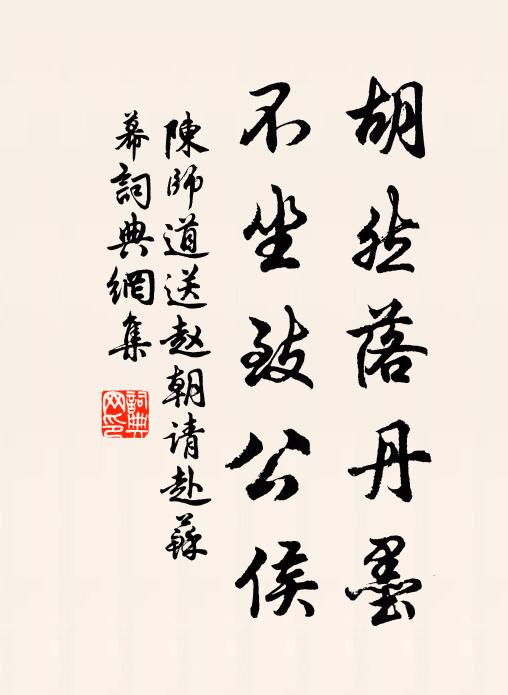 胡然落丹墨
不坐致公侯
陳師道送赵朝请赴蘇
幕詞典網集
詞典
网印